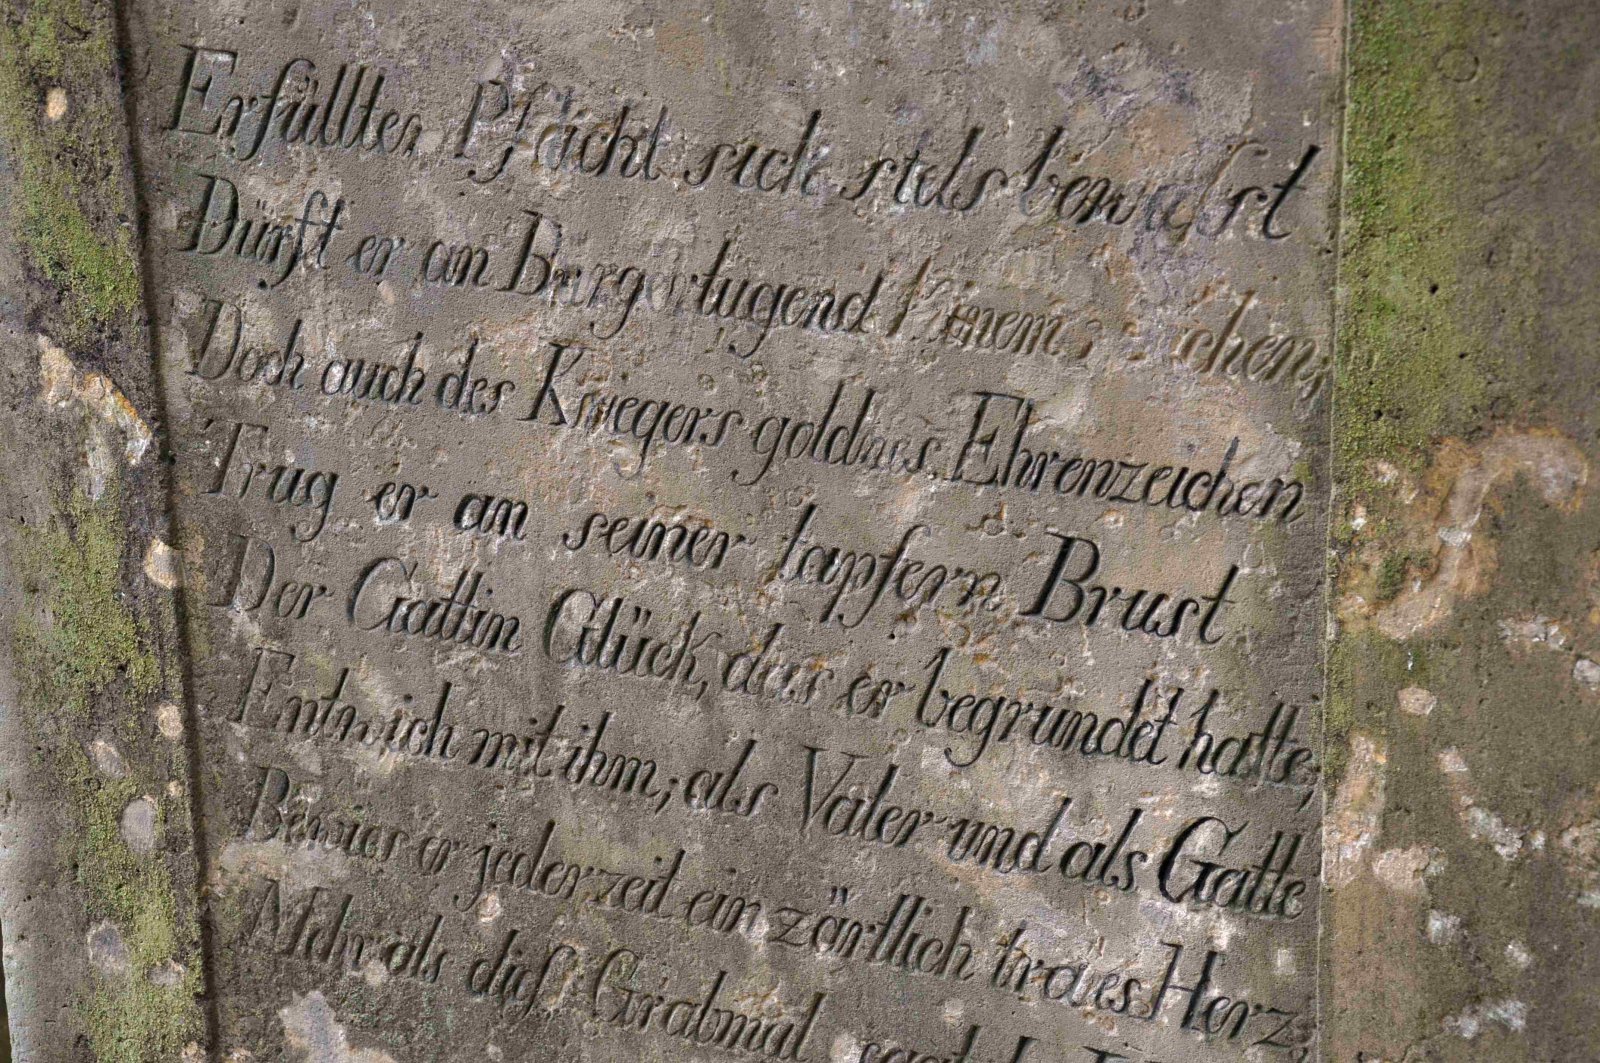 Erfüllter Pflicht sich stets bewusst
Dürft er an Bürgertugend keinem weichen;
Doch auch des Kriegers goldnes Ehrenzeichen
Trug er an seiner tapfern Brust
Der Gattin Glück, das er begründet hatte,
Entwich mit ihm; als Vater und als Gatte
Bewies er jederzeit ein zärtlich traues Herz,
Mehr als dieß Grabmal